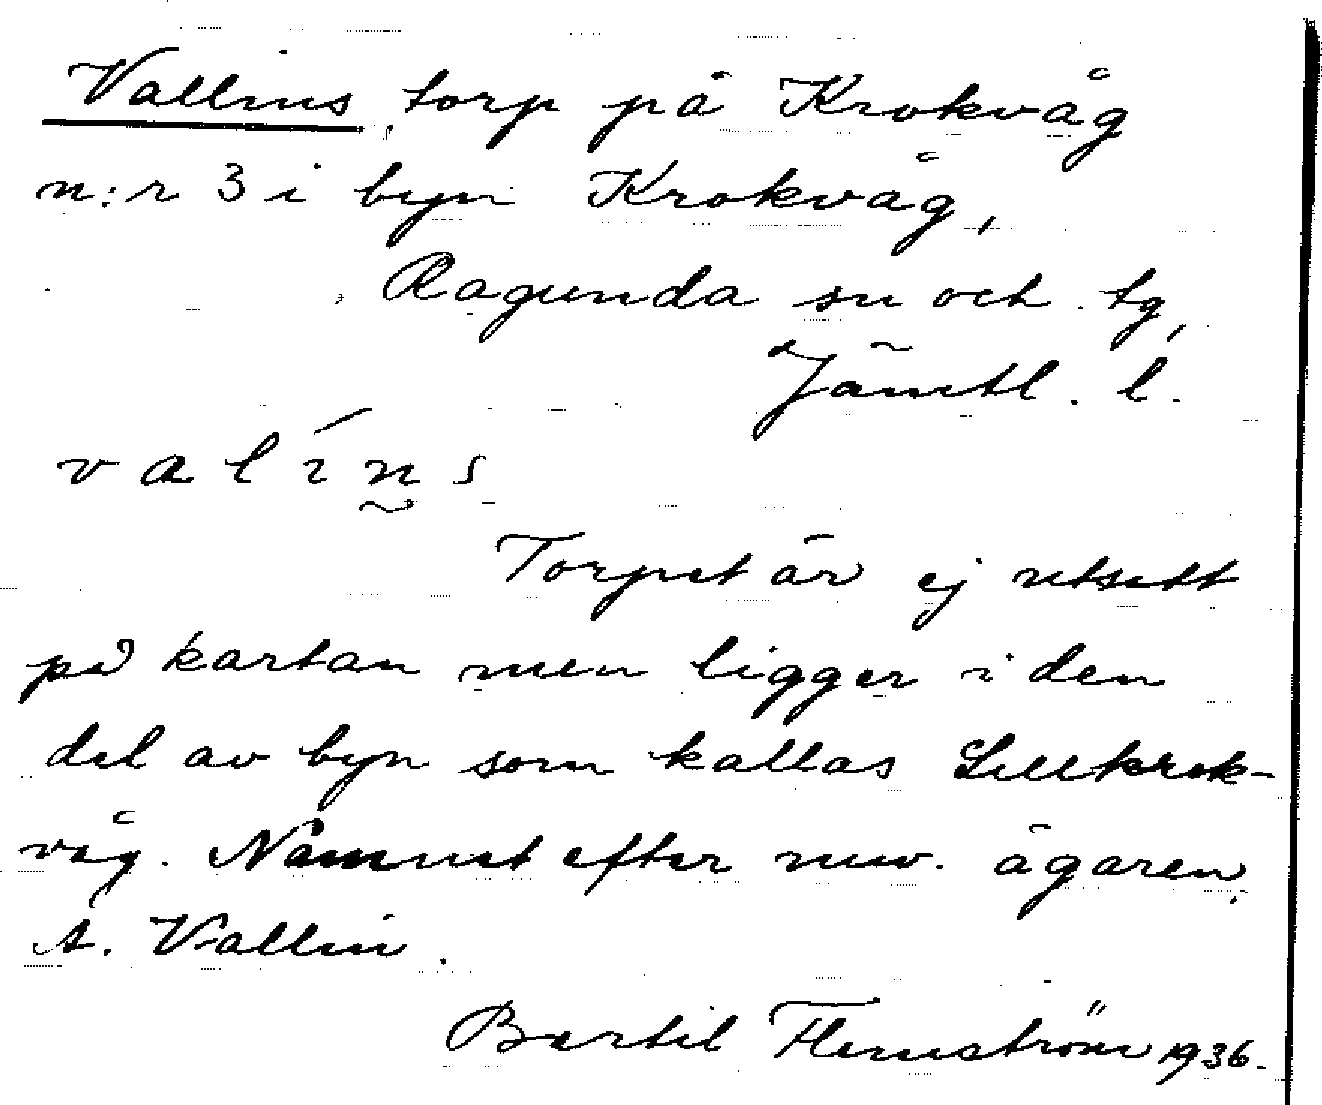 Vallins, torp på Krokvåg
n:r 3 i byn Krokvåg,
Ragunda sn och tg,
Jämtl. l.
valíns
Torpet är ej utsatt
på kartan men ligger i den
del av byn som kallas Lillkrok-
våg. Namnet efter nuv. ägaren,
A. Vallin.
Bertil Flemström 1936.